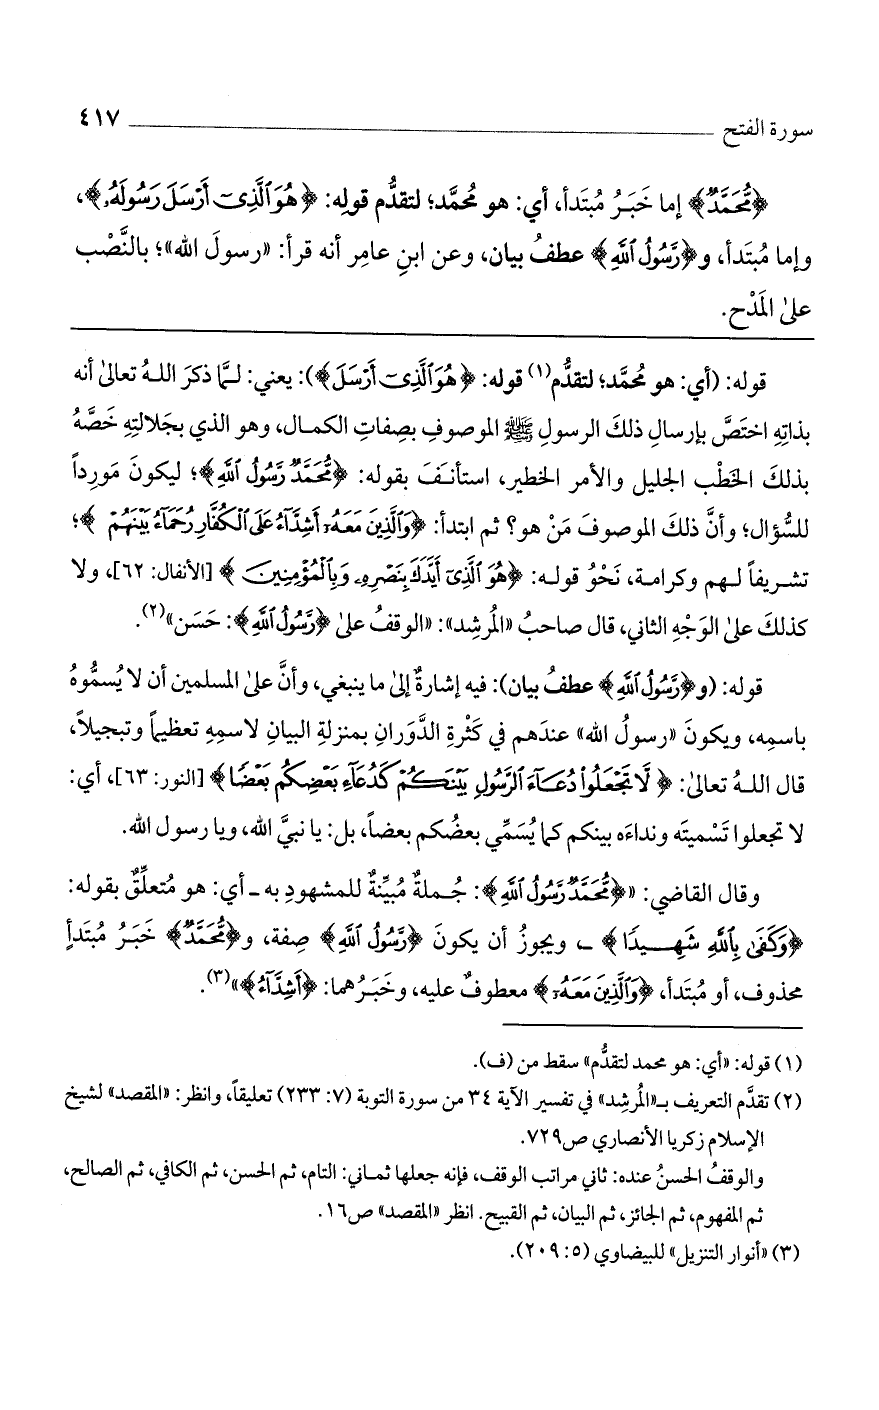 سورة الفتح ٤١٧
﴿مُّحَمَّدٌ﴾ إما خَبَرُ مُبتَدأ، أي: هو مُحمَّد؛ لتقدُّم قولِه: ﴿هُوَ ٱلَّذِىٓ أَرْسَلَ رَسُولَهُۥ﴾،
وإما مُبتَدأ، و﴿رَّسُولُ ٱللَّهِ﴾ عطفُ بيان، وعن ابنِ عامِر أنه قرأ: «رسولَ الله»؛ بالنَّصْب
علىٰ المَدْح.
قوله: (أي: هو مُحمَّد؛ لتقدُّم(١) قوله: ﴿هُوَ ٱلَّذِىٓ أَرْسَلَ﴾): يعني: لـمَّا ذكرَ اللهُ تعالىٰ أنه
بذاتِهِ اختَصَّ بإرسالِ ذلكَ الرسولِ ﷺ الموصوفِ بصِفاتِ الكمال، وهو الذي بجَلالتِهِ خَصَّهُ
بذلكَ الخَطْب الجليل والأمر الخطير، استأنَفَ بقوله: ﴿مُّحَمَّدٌ رَّسُولُ ٱللَّهِ﴾؛ ليكونَ مَورِداً
للسُّؤال؛ وأنَّ ذلكَ الموصوفَ مَنْ هو؟ ثم ابتدأ: ﴿وَٱلَّذِينَ مَعَهُۥٓ أَشِدَّآءُ عَلَى ٱلْكُفَّارِ رُحَمَآءُ بَيْنَهُمْ﴾؛
تشريفاً لهم وكرامة، نَحْوُ قوله: ﴿هُوَ ٱلَّذِىٓ أَيَّدَكَ بِنَصْرِهِۦ وَبِٱلْمُؤْمِنِينَ﴾ [الأنفال: ٦٢]، ولا
كذلكَ علىٰ الوَجْهِ الثاني، قال صاحبُ «المُرشِد»: «الوقفُ علىٰ ﴿رَّسُولُ ٱللَّهِ﴾: حَسَن»(٢).
قوله: (و﴿رَّسُولُ ٱللَّهِ﴾ عطفُ بيان): فيه إشارةٌ إلىٰ ما ينبغي، وأنَّ علىٰ المسلمين أن لا يُسمُّوهُ
باسمِه، ويكونَ «رسولُ الله» عندَهم في كَثْرةِ الدَّوَرانِ بمنزلةِ البيانِ لاسمِهِ تعظيماً وتبجيلاً،
قال اللهُ تعالىٰ: ﴿لَّا تَجْعَلُوا۟ دُعَآءَ ٱلرَّسُولِ بَيْنَكُمْ كَدُعَآءِ بَعْضِكُم بَعْضًا﴾ [النور: ٦٣]، أي:
لا تجعلوا تَسْميتَه ونداءَه بينكم كما يُسَمِّي بعضُكم بعضاً، بل: يا نبيَّ الله، ويا رسول الله.
وقال القاضي: «﴿مُّحَمَّدٌ رَّسُولُ ٱللَّهِ﴾: جُملةٌ مُبيِّنةٌ للمشهودِ به ـ أي: هو مُتعلِّقٌ بقوله:
﴿وَكَفَىٰ بِٱللَّهِ شَهِيدًا﴾ ـ، ويجوزُ أن يكونَ ﴿رَّسُولُ ٱللَّهِ﴾ صِفة، و﴿مُّحَمَّدٌ﴾ خَبَرُ مُبتَدأٍ
محذوف، أو مُبتَدأ، ﴿وَٱلَّذِينَ مَعَهُۥٓ﴾ معطوفٌ عليه، وخَبَرُهما: ﴿أَشِدَّآءُ﴾»(٣).
(١) قوله: «أي: هو محمد لتقدُّم» سقط من (ف).
(٢) تقدَّم التعريف بـ«المُرشِد» في تفسير الآية ٣٤ من سورة التوبة (٧: ٢٣٣) تعليقاً، وانظر: «المقصد» لشيخ
الإسلام زكريا الأنصاري ص٧٢٩.
والوقفُ الحسنُ عنده: ثاني مراتب الوقف، فإنه جعلها ثماني: التام، ثم الحسن، ثم الكافي، ثم الصالح،
ثم المفهوم، ثم الجائز، ثم البيان، ثم القبيح. انظر «المقصد» ص١٦.
(٣) «أنوار التنزيل» للبيضاوي (٥: ٢٠٩).